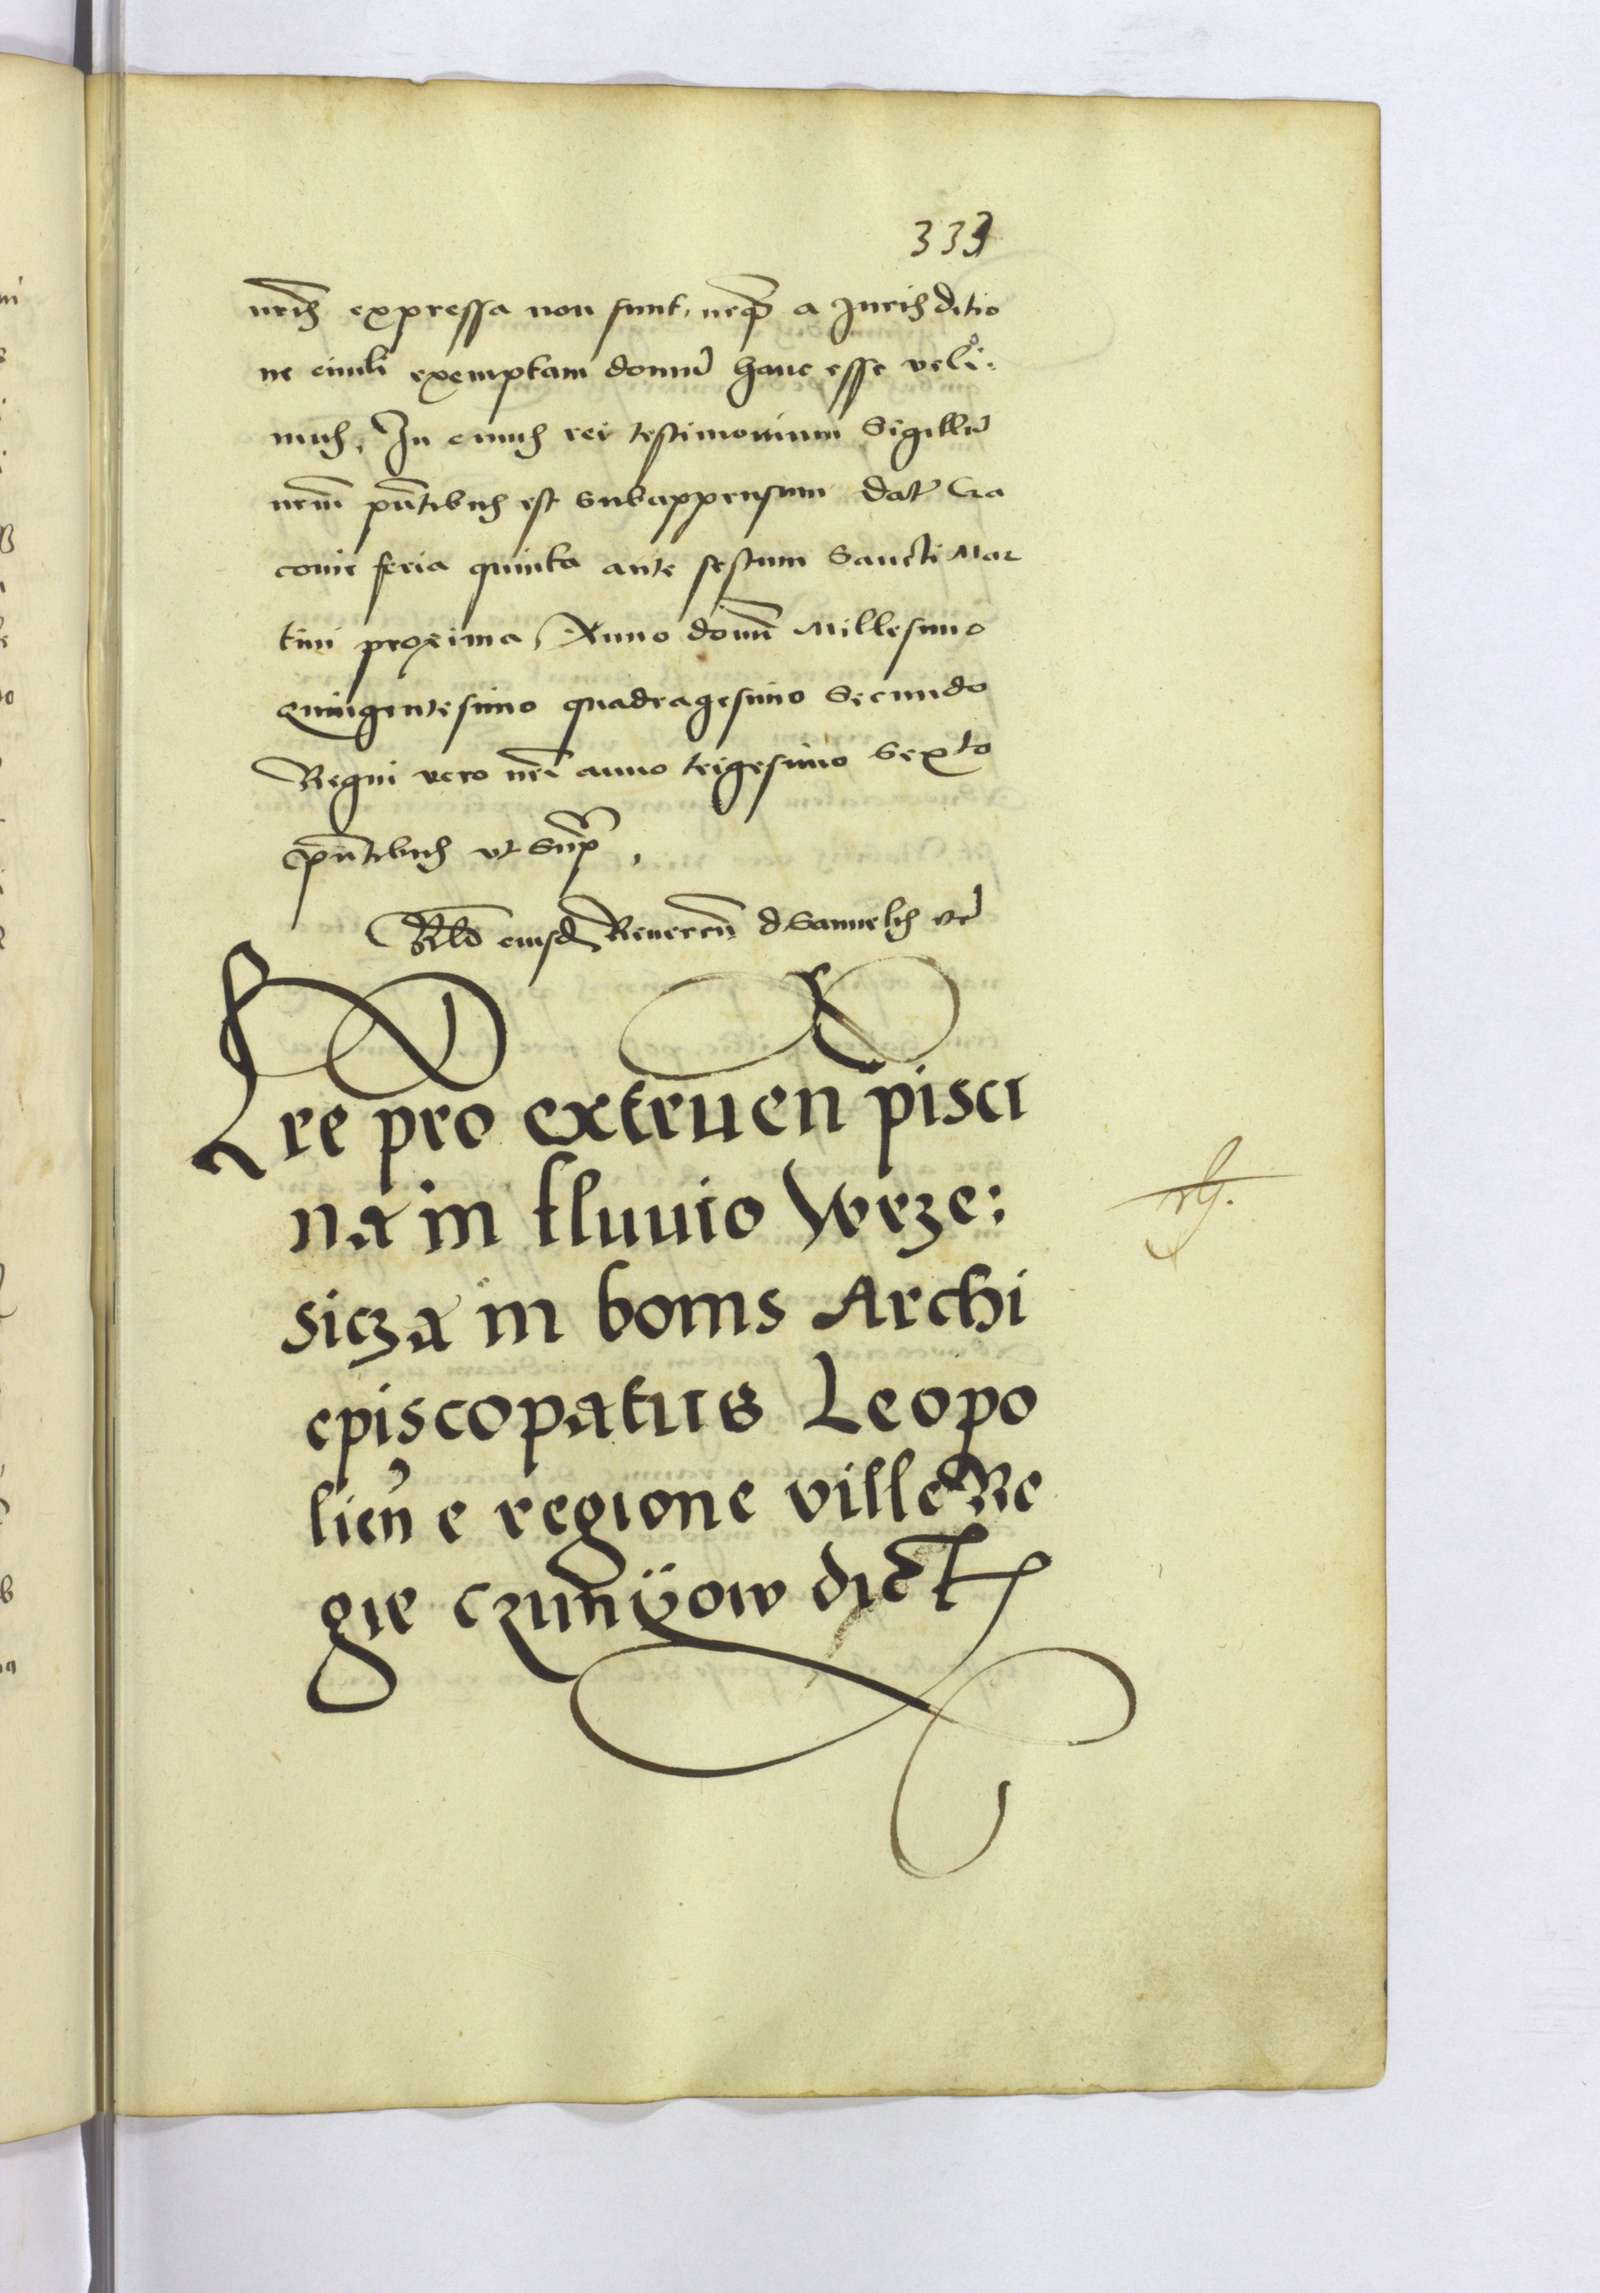 333
nris expressa non sunt, neq̃ a Jurisditio
ne ciuili exemptam domũ hanc esse veli:
mus, In cuius rei testimonium Sigillũ
nrm̃ pñtibus est subappensum Dat̃ Cra
couie feria quinta ante festum Sancti Mar
tini proxima, Anno domĩ Millesimo
Quingentesimo quadragesimo Secundo
Regni vero nrĩ anno trigesimo Sexto
pñtibus vt supra,
Rlo eiusd̃ Reueren̄ d Samuelis etc̃
Lre pro extruen̄ pisci
na in fluuio Wrze:
sicza in bonis Archi
episcopatus Leopo
lien̄ e regione ville Re
gie czunÿow dict